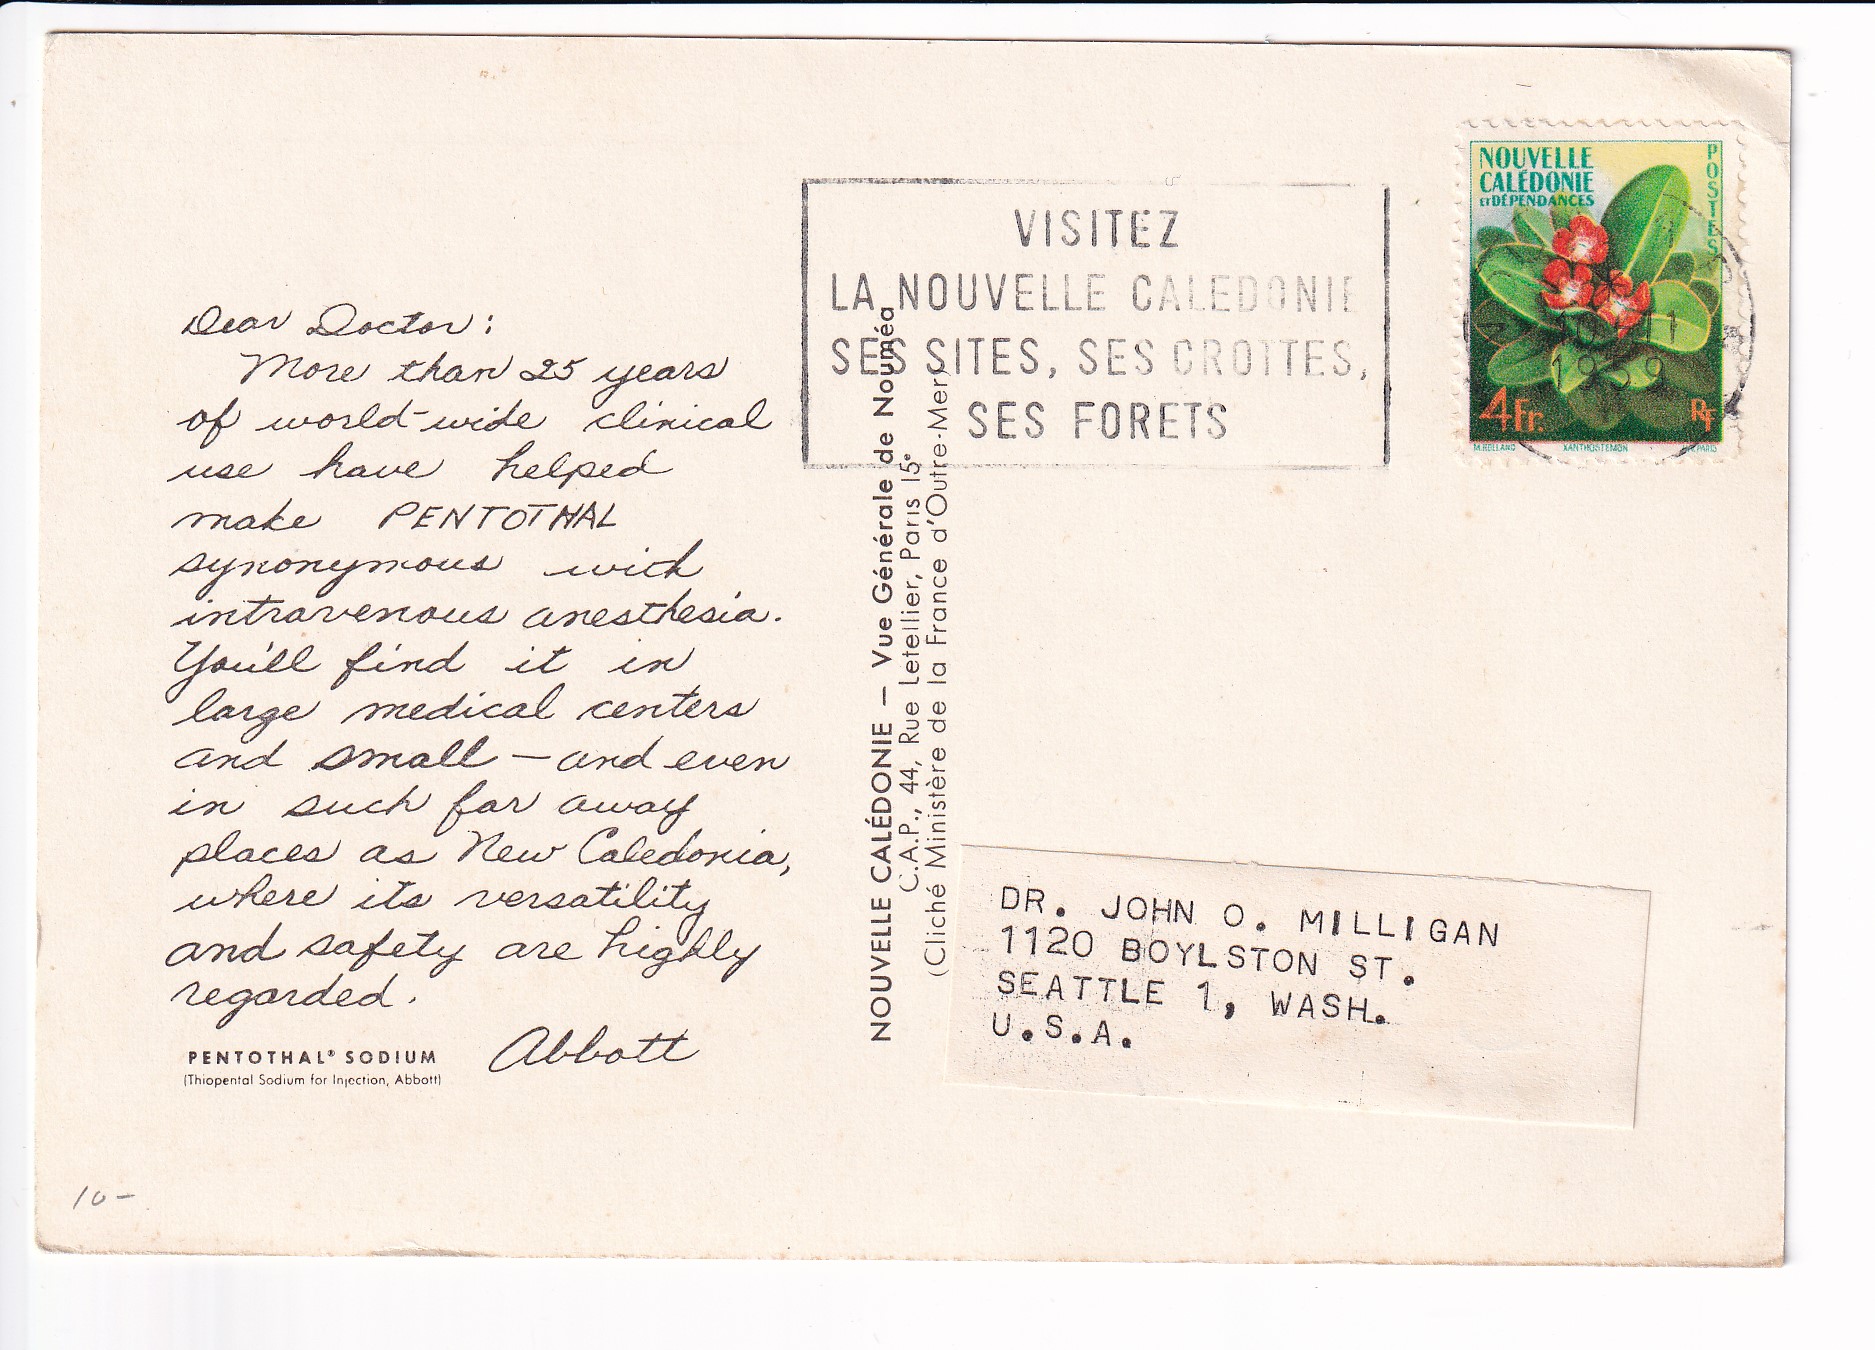 Dear Doctor:
More than 25 years
of world-wide clinical
use have helped
make PENTOTHAL
synonymous with
intravenous anesthesia.
You'll find it in
large medical centers
and small — and even
in such far away
places as New Caledonia,
where its versatility
and safety are highly
regarded.
Abbott
PENTOTHAL® SODIUM
(Thiopental Sodium for Injection, Abbott)
10-
NOUVELLE CALÉDONIE — Vue Générale de Nouméa
C.A.P., 44, Rue Letellier, Paris 15e
(Cliché Ministère de la France d'Outre-Mer)
VISITEZ
LA NOUVELLE CALEDONIE
SES SITES, SES GROTTES,
SES FORETS
NOUVELLE
CALÉDONIE
ET DÉPENDANCES
POSTES
11
1959
4Fr.
RF
XANTHOSTEMON
DR. JOHN O. MILLIGAN
1120 BOYLSTON ST.
SEATTLE 1, WASH.
U.S.A.